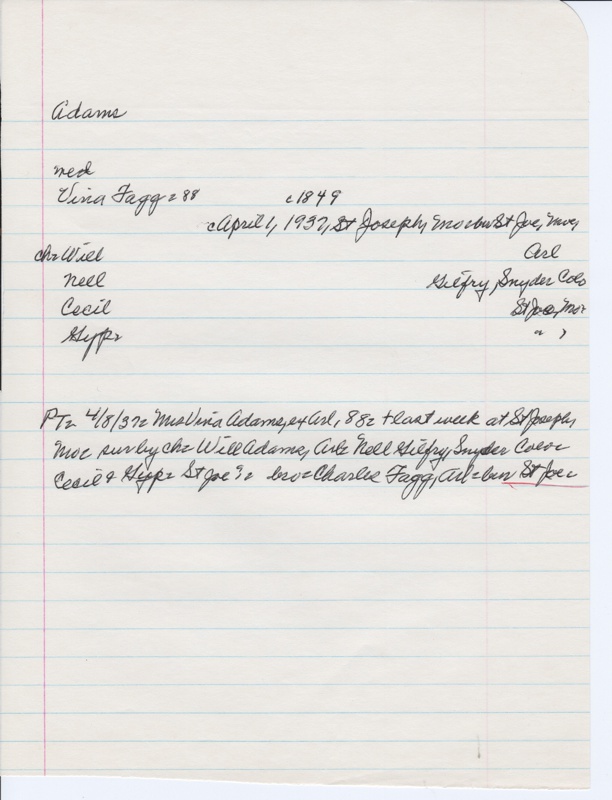 Adams
Ned
Vina Fagg = 88 c1849
cApril 1, 1937, St Joseph, Mo = bur St Joe, Mo =
ch = Will Arl
Nell Gilfry, Snyder Colo
Cecil St Joe, Mo =
Gyp = " "
PT = 4/8/37 = Mrs Vina Adams, ex Arl, 88 = + last week at St Joseph,
Mo = sur by ch = Will Adams, Arl = Nell Gilfry, Snyder Colo =
Cecil & Gyp = St Joe = bro = Charlie Fagg, Arl = bur St Joe =